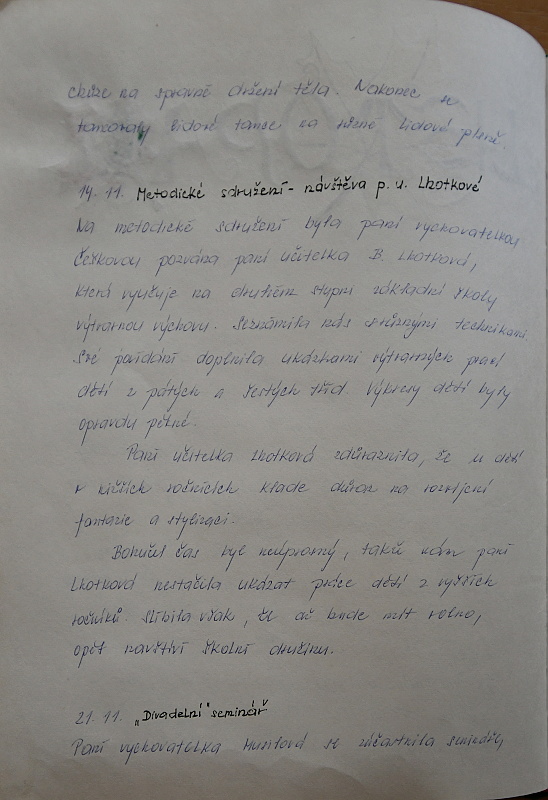 chůze na správné držení těla. Nakonec se
tancovaly lidové tance na různé lidové písně.
14. 11. Metodické sdružení - návštěva p. u. Lhotkové
Na metodické sdružení byla paní vychovatelkou
Češkovou pozvána paní učitelka B. Lhotková,
která vyučuje na druhém stupni základní školy
výtvarnou výchovu. Seznámila nás s různými technikami.
Své povídání doplnila ukázkami výtvarných prací
dětí z pátých a šestých tříd. Výkresy dětí byly
opravdu pěkné.
Paní učitelka Lhotková zdůraznila, že u dětí
v nižších ročnících klade důraz na rozvíjení
fantazie a stylizaci.
Bohužel čas byl neúprosný, takže nám paní
Lhotková nestačila ukázat práce dětí z vyšších
ročníků. Slíbila však, že až bude mít volno,
opět navštíví školní družinu.
21. 11. „Divadelní" seminář
Paní vychovatelka se zúčastnila semináře